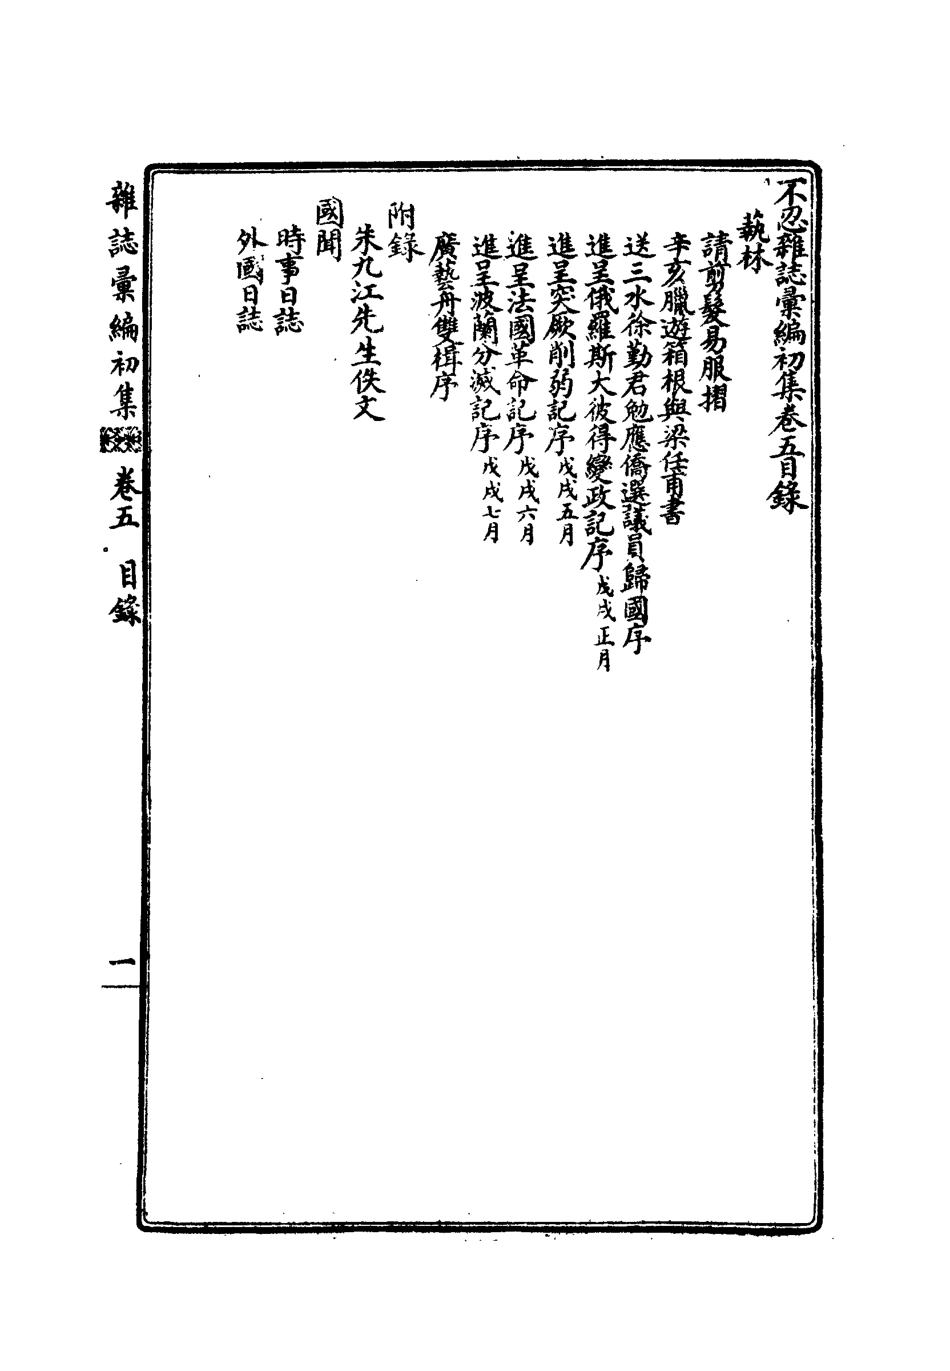 不忍雜誌彙編初集卷五目錄
藝林
請剪髮易服摺
辛亥臘遊箱根與梁任甫書
送三水徐勤君勉應僑選議員歸國序
進呈俄羅斯大彼得變政記序 戊戌正月
進呈突厥削弱記序 戊戌五月
進呈法國革命記序 戊戌六月
進呈波蘭分滅記序 戊戌七月
廣藝舟雙楫序
附錄
朱九江先生佚文
國聞
時事日誌
外國日誌
雜誌彙編初集 卷五 目錄 一